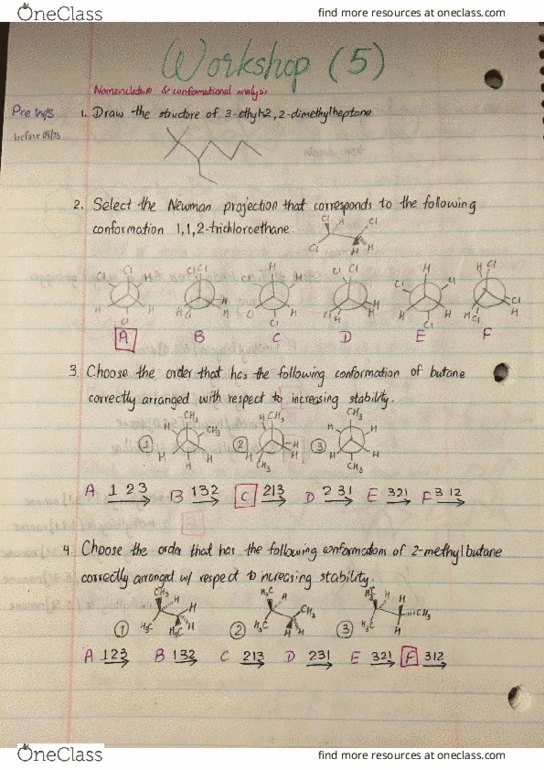 OneClass
find more resources at oneclass.com
Workshop (5)
Nomenclature & conformational analysis
Pre W/s
1. Draw the structure of 3-ethyl-2,2-dimethylheptane
2. Select the Newman projection that corresponds to the following
conformation 1,1,2-trichloroethane.
Cl H Cl
Cl H H
A B C D E F
3. Choose the order that has the following conformation of butane
correctly arranged with respect to increasing stability.
1 2 3
A 123 B 132 C 213 D 231 E 321 F 312
4. Choose the order that has the following conformations of 2-methylbutane
correctly arranged w/ respect to increasing stability.
1 2 3
A 123 B 132 C 213 D 231 E 321 F 312
OneClass
find more resources at oneclass.com